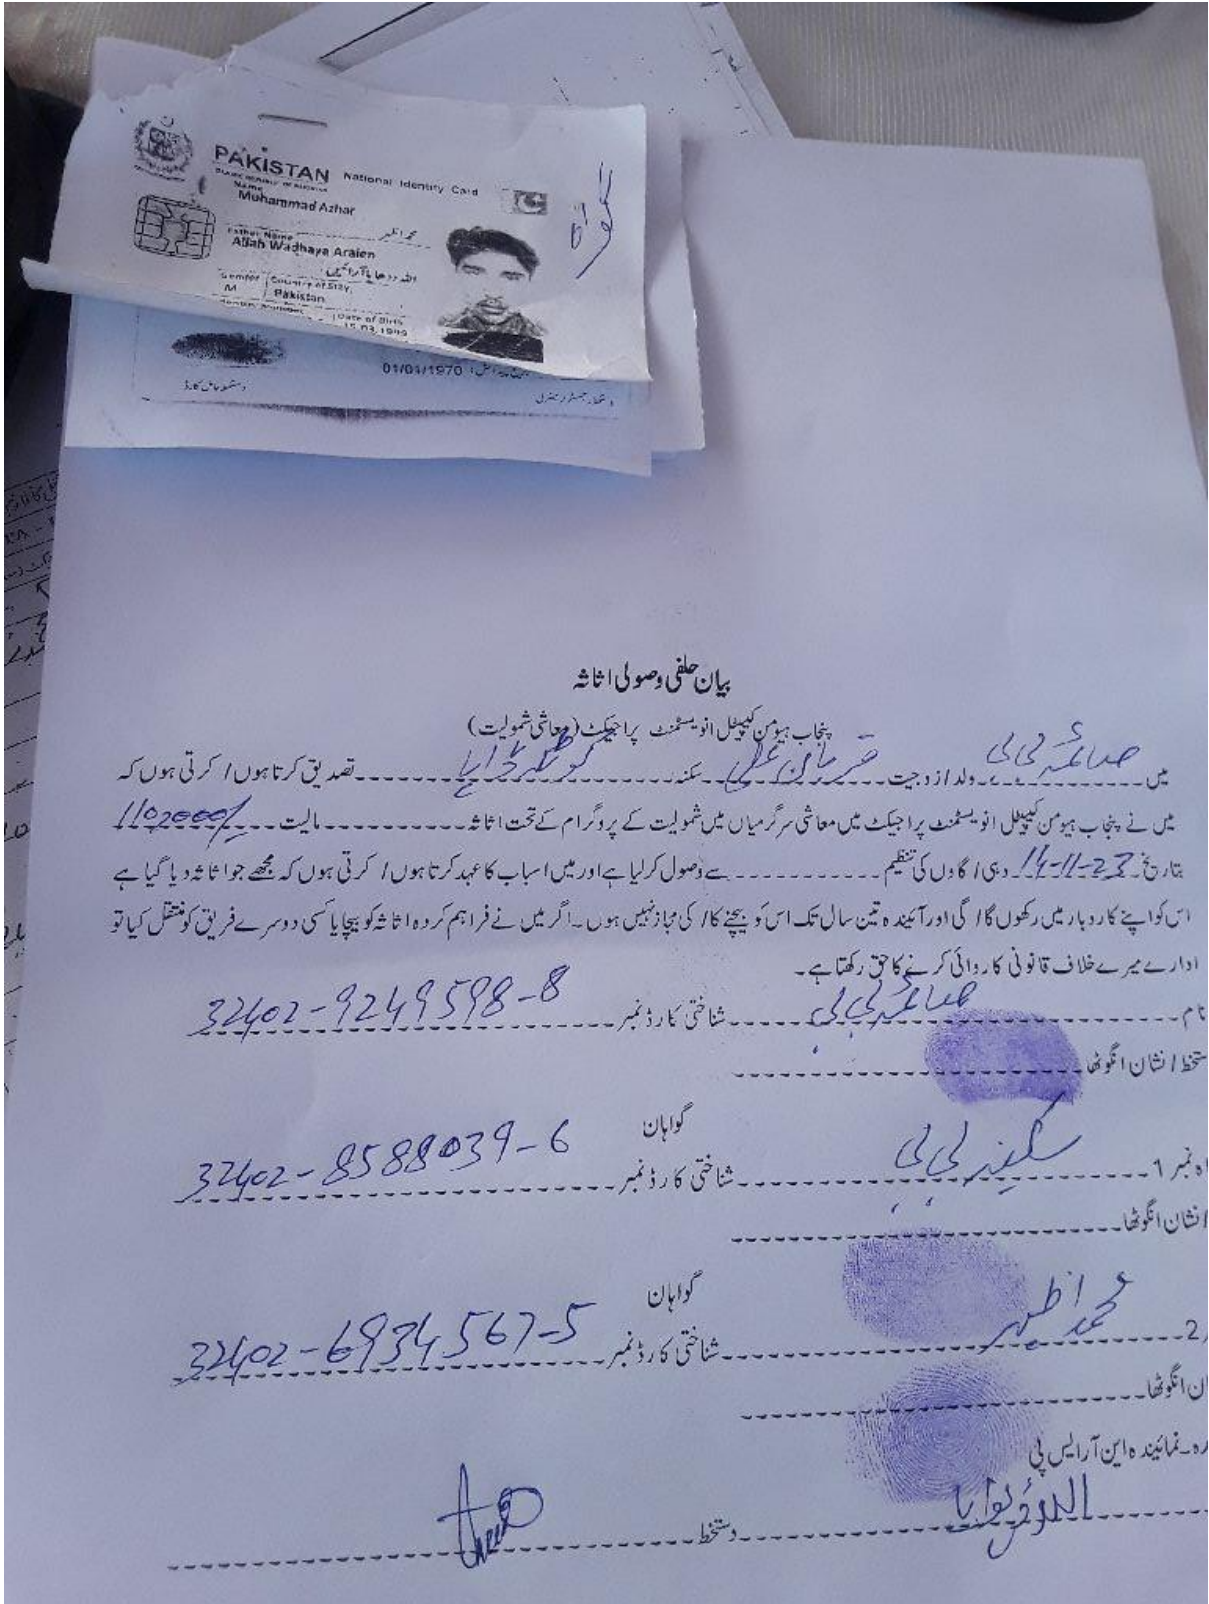 PAKISTAN National Identity Card
Name
Muhammad Azhar
محمد اظہر
Father Name
Allah Wadhaya Araien
اللہ ودھایا آرائیں
Gender Country of Stay
M Pakistan
Date of Birth
گواہ
01/01/1970
دستخط حامل کارڈ
دستخط رجسٹرار جنرل
بیان حلفی وصولی اثاثہ
پنجاب ہیومن کیپیٹل انویسٹمنٹ پراجیکٹ (معاشی شمولیت)
میں صائمہ بی بی ولد / زوجیت قربان علی سکنہ تصدیق کرتا ہوں / کرتی ہوں کہ
میں نے پنجاب ہیومن کیپیٹل انویسٹمنٹ پراجیکٹ میں معاشی سرگرمیاں میں شمولیت کے پروگرام کے تحت اثاثہ مالیت 1102000/
بتاریخ 14-11-23 دیہی / گاوں کی تنظیم سے وصول کر لیا ہے اور میں اسباب کا عہد کرتا ہوں / کرتی ہوں کہ مجھے جو اثاثہ دیا گیا ہے
اس کو اپنے کاروبار میں رکھوں گا / گی اور آئیندہ تین سال تک اس کو بیچنے کا / کی مجاز نہیں ہوں۔ اگر میں نے فراہم کردہ اثاثہ کو بیچا یا کسی دوسرے فریق کو منتقل کیا تو
ادارے میرے خلاف قانونی کاروائی کرنے کا حق رکھتا ہے۔
نام صائمہ بی بی شناختی کارڈ نمبر 32402-9249598-8
ستخط / نشان انگوٹھا
گواہان
اہ نمبر 1 سکینہ بی بی شناختی کارڈ نمبر 32402-8588039-6
/ نشان انگوٹھا
گواہان
2 محمد اظہر شناختی کارڈ نمبر 32402-6934567-5
ان انگوٹھا
رہ۔نمائیندہ این آر ایس پی
دستخط